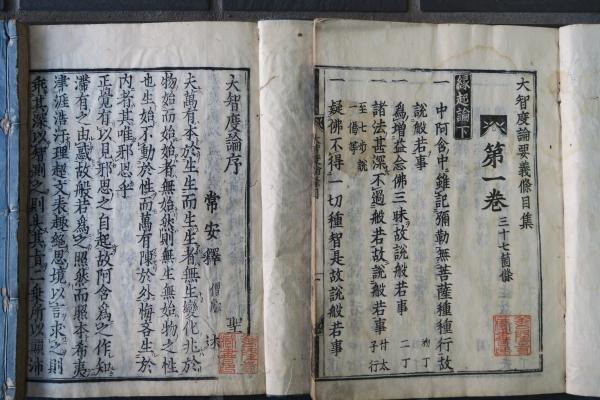 大智度論要義條目集
第一卷 三十七箇條
緣起論下
一 中阿含中雖記彌勒無菩薩種種行故
說般若事 初丁
一 爲增益念佛三昧故說般若事 二丁
一 諸法甚深不過般若故說般若事
一 疑佛不得一切種智是故說般若事
大智度論序
常安釋 僧叡 述
夫萬有本於生生而生生者無生變化兆於
物始而始始者無始然則無生無始物之性
也生始不動於性而萬有陳於外悔吝生於
內者其唯邪思乎
正覺有以見邪思之自起故阿含爲之作知
滯有之由惑故般若爲之照然而照本希夷
津涯浩汗理超文表趣絕思境以言求之則
乖其深以智測之則失其旨二乘所以顛沛